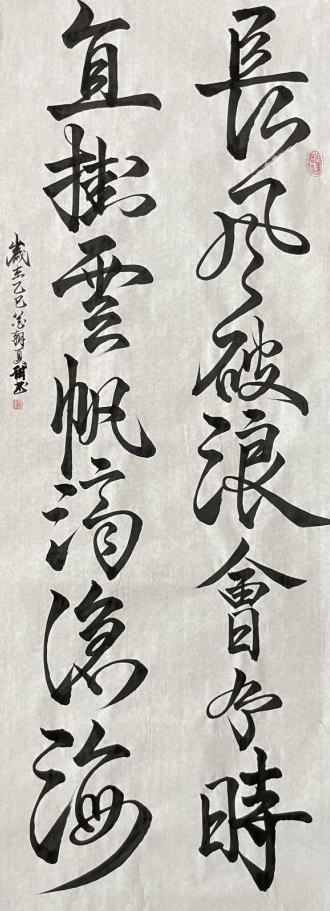 長風破浪會有時
直掛雲帆濟滄海
歲在乙巳